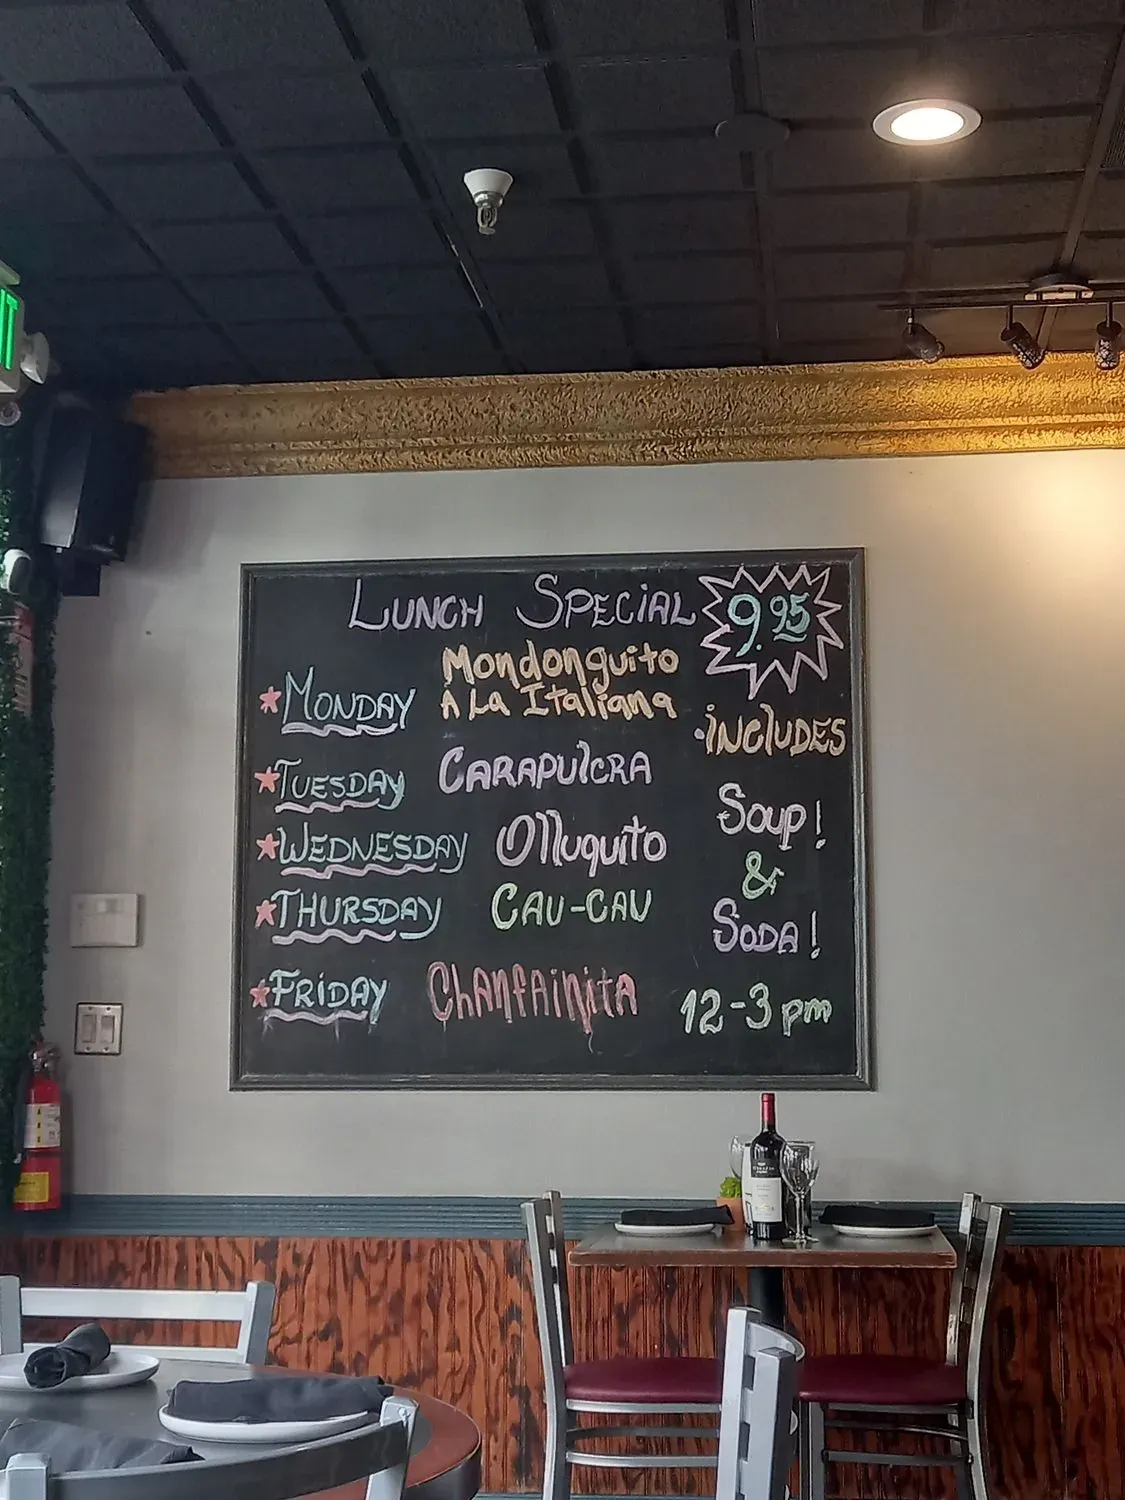 LUNCH SPECIAL 9.95
MONDAY Mondonguito
A La Italiana
TUESDAY CARAPULCRA
WEDNESDAY Olluquito
THURSDAY CAU-CAU
FRIDAY Chanfainita
·iNCLUDES
Soup!
&
SODA!
12-3pm